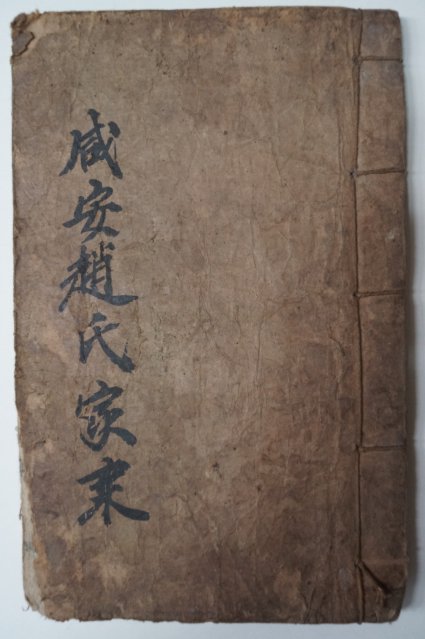 咸安趙氏家乘